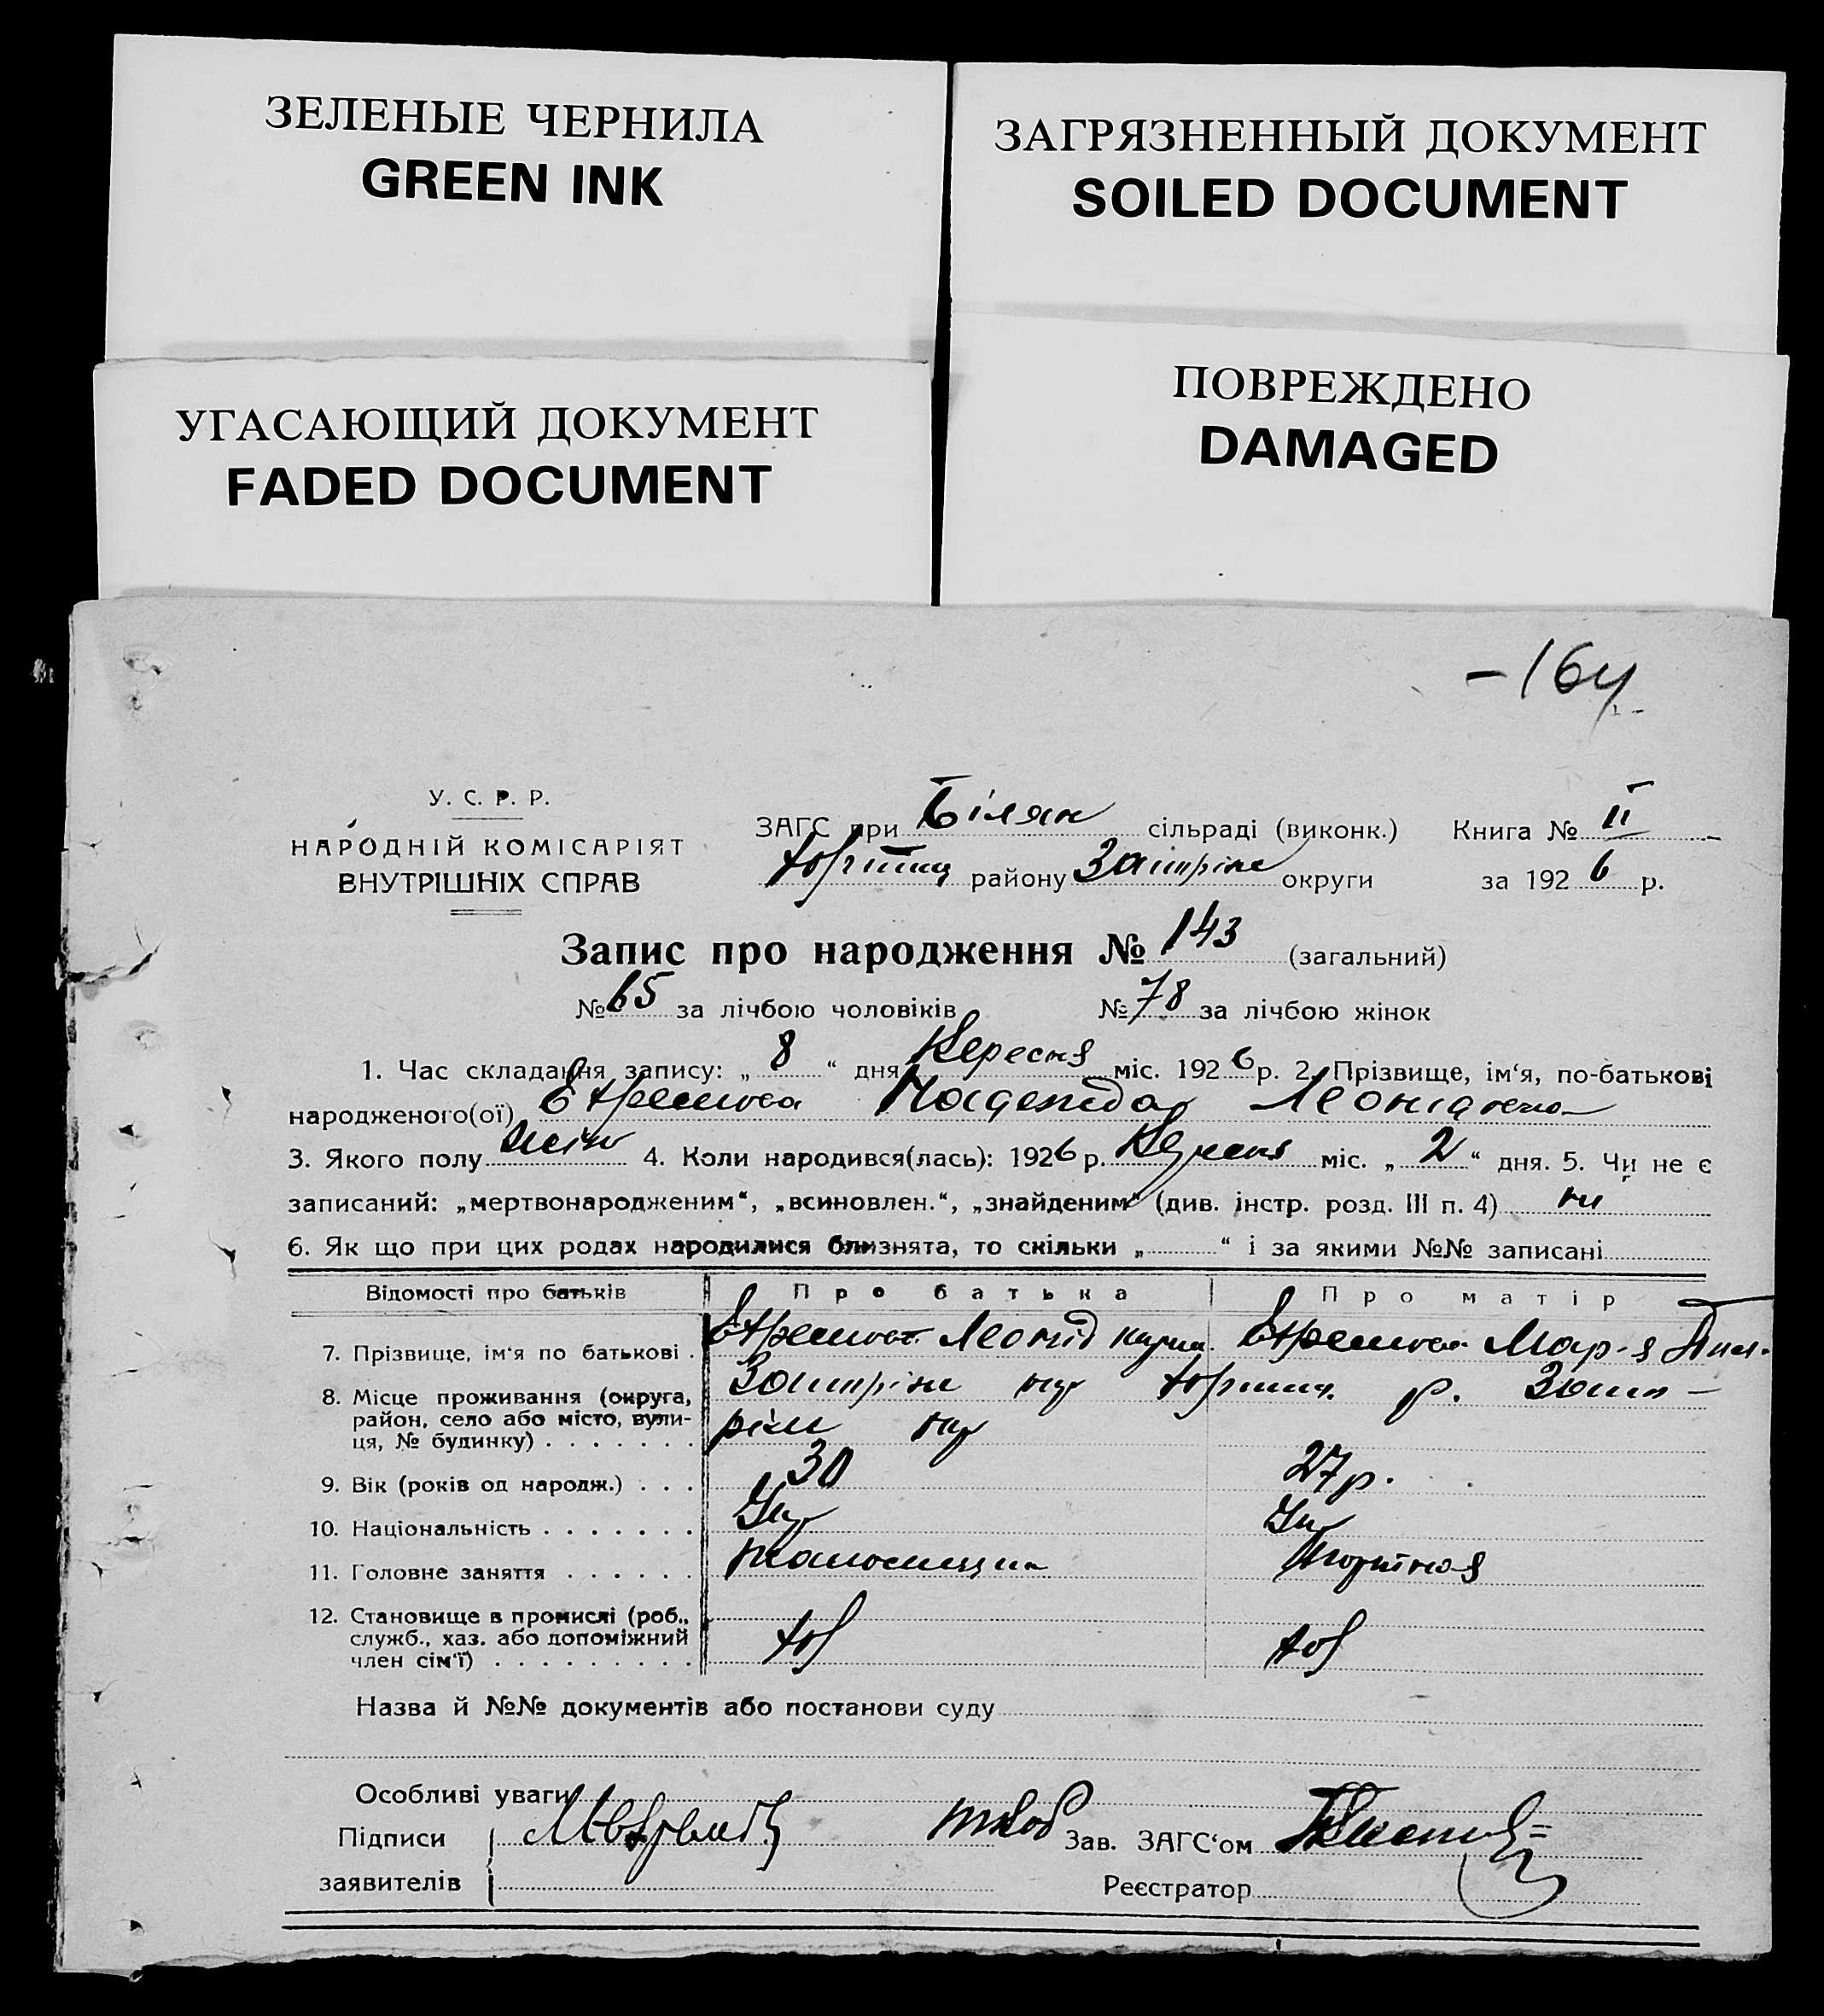 ЗЕЛЕНЫЕ ЧЕРНИЛА
GREEN INK
ЗАГРЯЗНЕННЫЙ ДОКУМЕНТ
SOILED DOCUMENT
УГАСАЮЩИЙ ДОКУМЕНТ
FADED DOCUMENT
ПОВРЕЖДЕНО
DAMAGED
У. С. Р. Р.
НАРОДНІЙ КОМІСАРІЯТ
ВНУТРІШНІХ СПРАВ
ЗАГС при Білян сільраді (виконк.) Книга № II
району округи за 1926 р.
Запис про народження № 143 (загальний)
№ 65 за лічбою чоловіків № 78 за лічбою жінок
1. Час складання запису: „ 8 “ дня Вересня міс. 1926 р. 2. Прізвище, ім‘я, по-батькові
народженого(ої) Надежда
3. Якого полу жін 4. Коли народився(лась): 1926 р. міс. „ 2 “ дня. 5. Чи не є
записаний: „мертвонародженим“, „всиновлен.“, „знайденим“ (див. інстр. розд. III п. 4) ни
6. Як що при цих родах народилися близнята, то скільки „ “ і за якими №№ записані
Відомості про батьків Про батька Про матір
7. Прізвище, ім‘я по батькові . Леонід
8. Місце проживання (округа,
район, село або місто, вули-
ця, № будинку) . . . . . . .
9. Вік (років од народж.) . . . 30 27 р.
10. Національність . . . . . . . Укр Укр
11. Головне заняття . . . . . .
12. Становище в промислі (роб.,
служб., хаз. або допоміжний
член сім‘ї) . . . . . . . . .
Назва й №№ документів або постанови суду
Особливі уваги
Підписи
заявителів
Зав. ЗАГС‘ом
Реєстратор